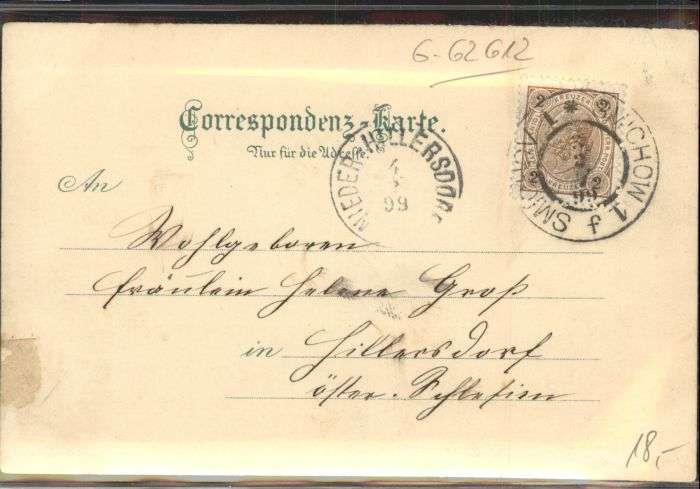 6-62612
Correspondenz-Karte.
Nur für die Adresse.
NIEDER-HILLERSDORF
4
99
2 KREUZER 2
2 2
SMICHOW 1
SMICHOV 1
99
An
Wohlgeboren
Fräulein Helene Groß
in Hillersdorf
öster. Schlesien
18,-